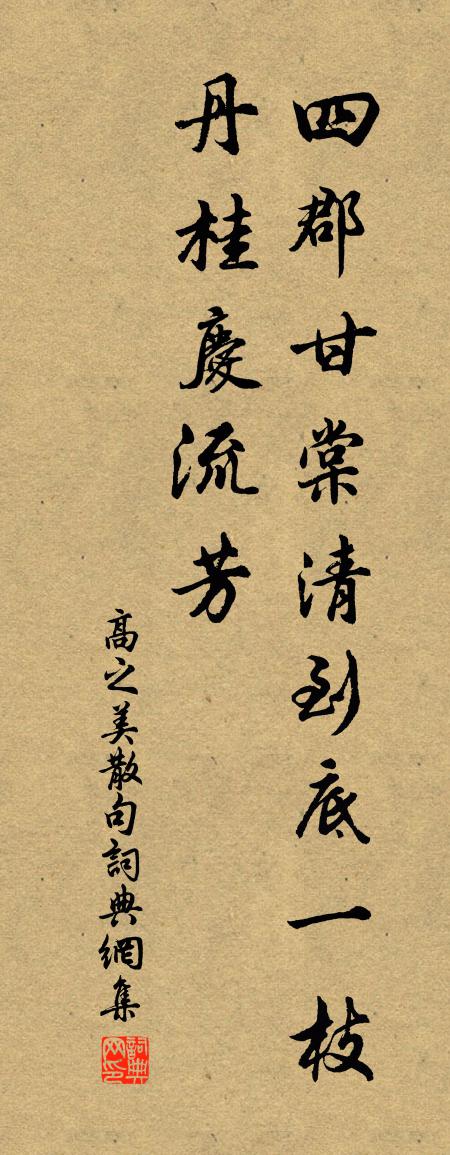 四郡甘棠清到底一枝
丹桂慶流芳
高之美散句詞典網集
詞典网印